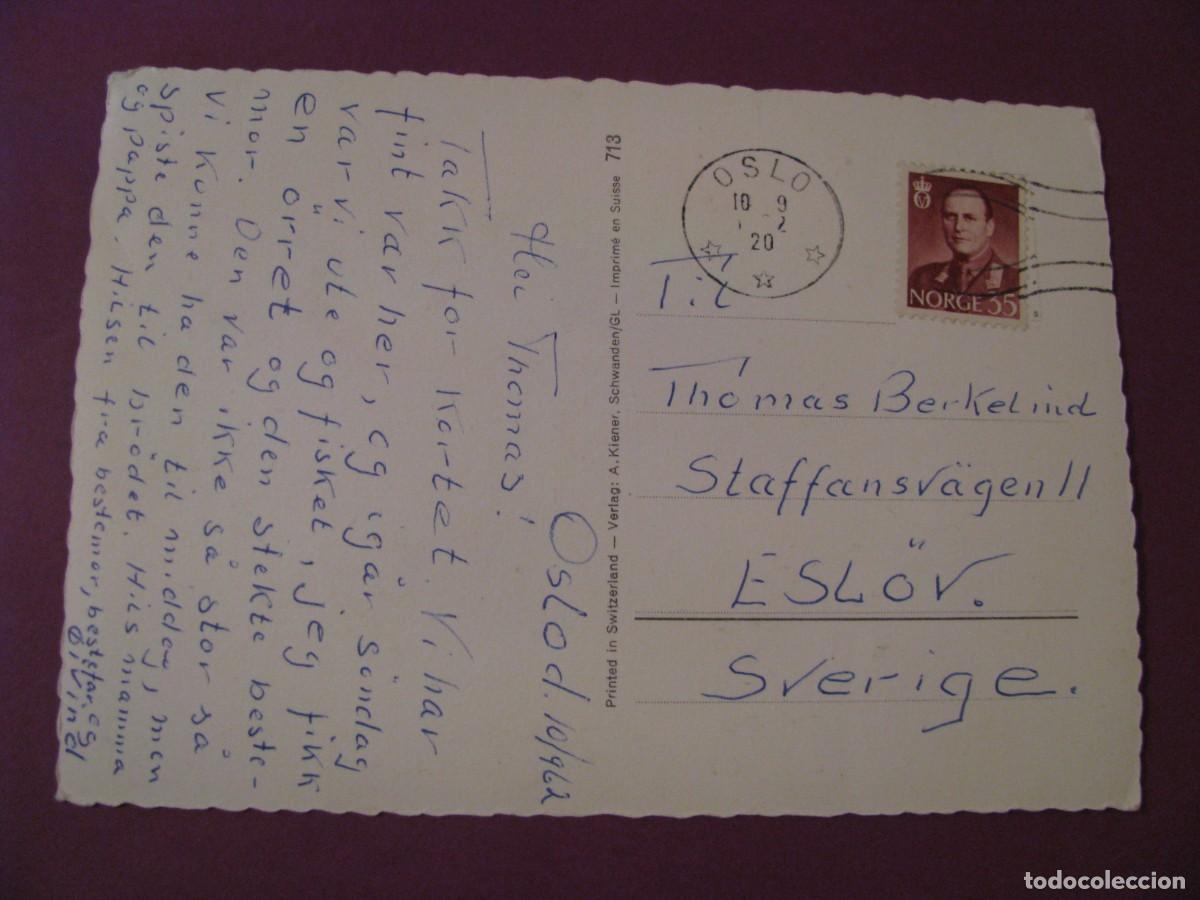 Oslo d. 10/962
Hei Thomas!
Takk for kortet. Vi har
fint vær her, og igår söndag
var vi ute og fisket, jeg fikk
en örret og den stekte beste-
mor. Den var ikke så stor så
vi kunne ha den til middag, men
spiste den til brödet. Hils mamma
og pappa. Hilsen fra bestemor, bestefar og
Öivind
Printed in Switzerland — Verlag: A. Kiener, Schwanden/GL — Imprimé en Suisse 713
OSLO
10 9
2
20
NORGE 35
Til
Thomas Berkelind
Staffansvägen 11
ESLÖV.
Sverige.
todocoleccion